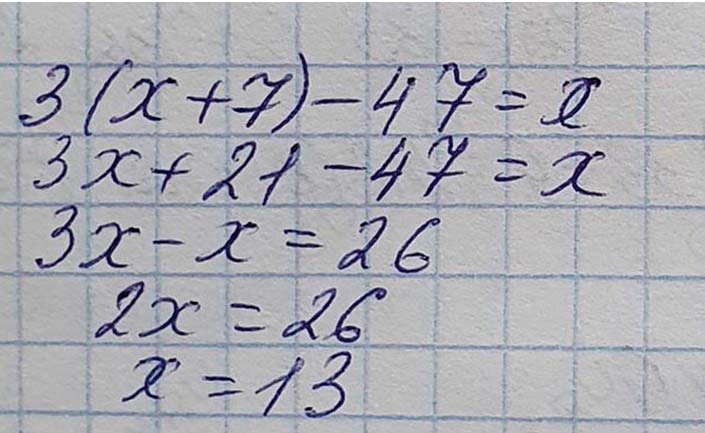 3(x+7)-47=x
3x+21-47=x
3x-x=26
2x=26
x=13